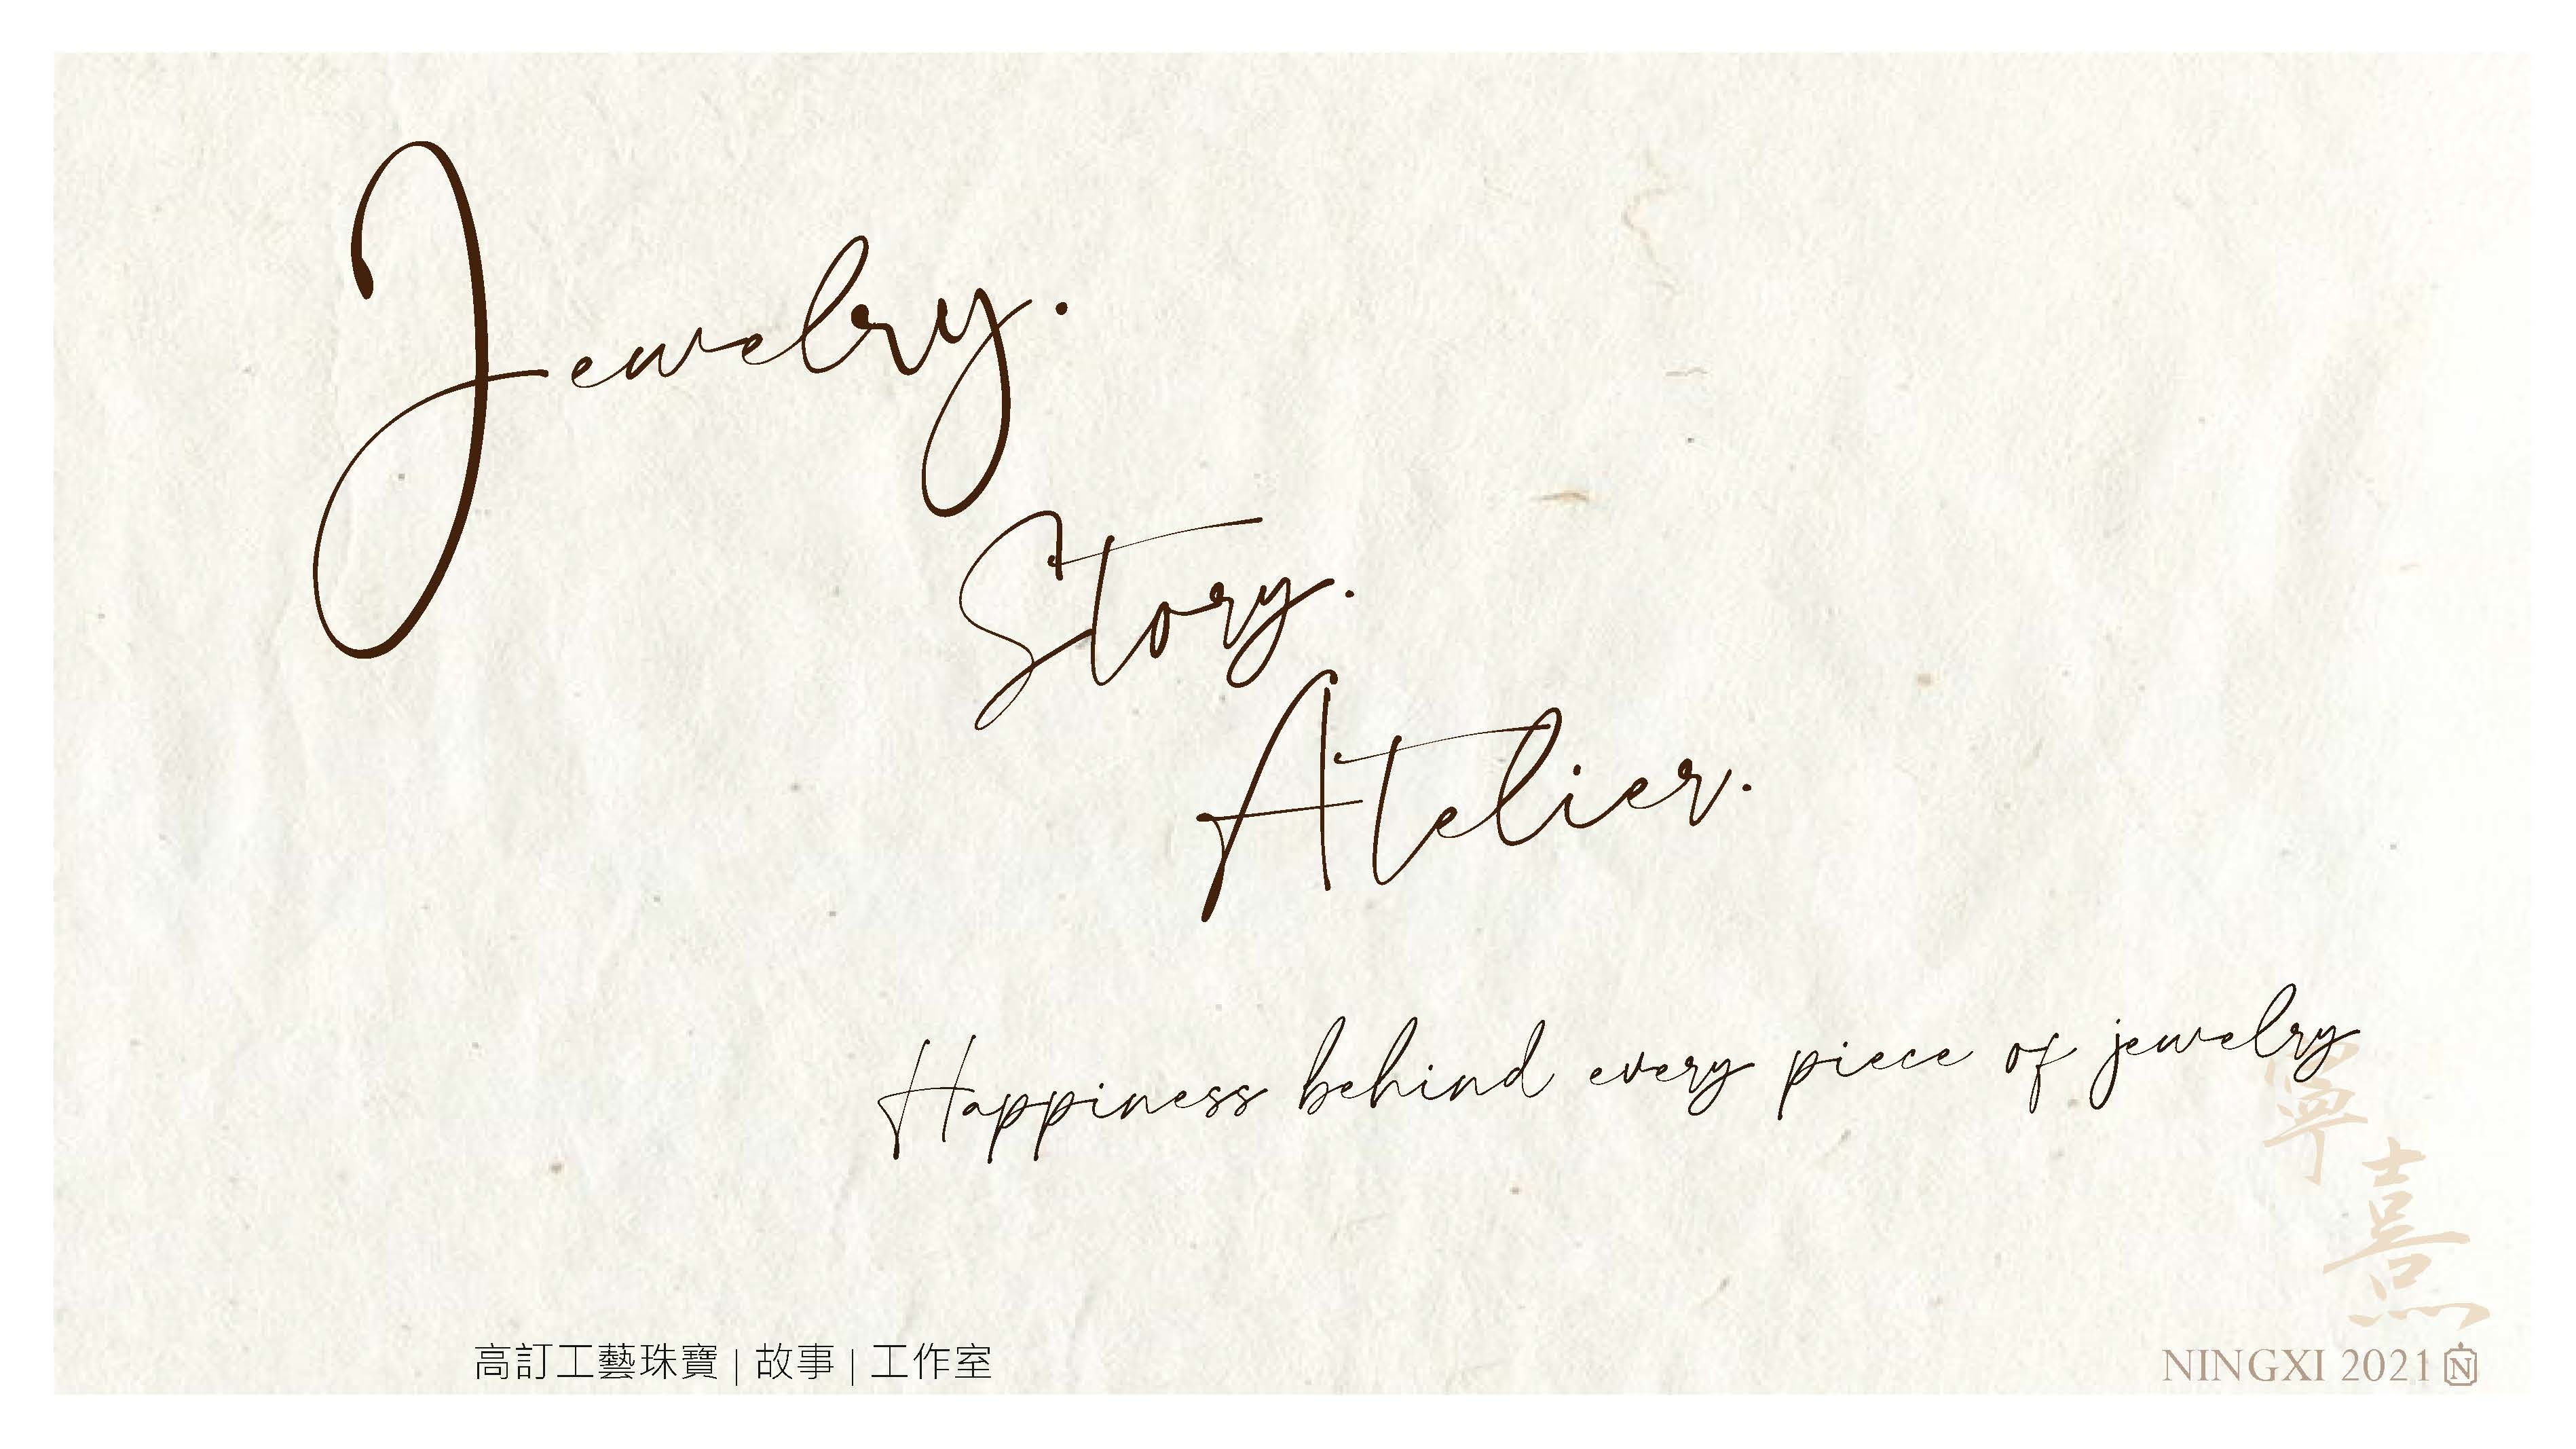 Jewelry.
Story.
Atelier.
Happiness behind every piece of jewelry
寧
熹
高訂工藝珠寶 | 故事 | 工作室
NINGXI 2021 N